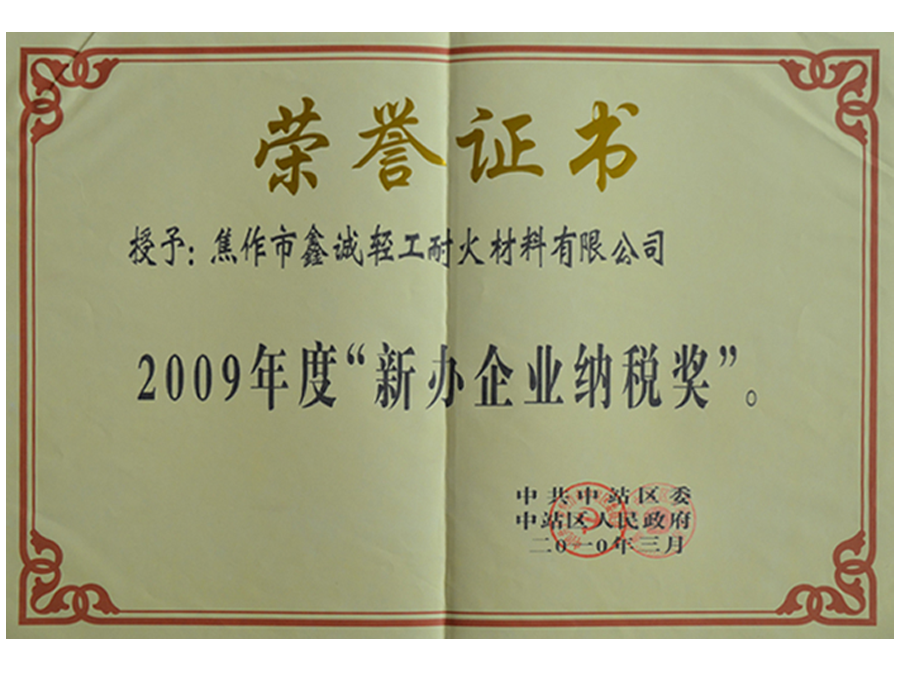 荣誉证书
授予：焦作市鑫诚轻工耐火材料有限公司
2009年度“新办企业纳税奖”。
中共中站区委
中站区人民政府
二〇一〇年三月